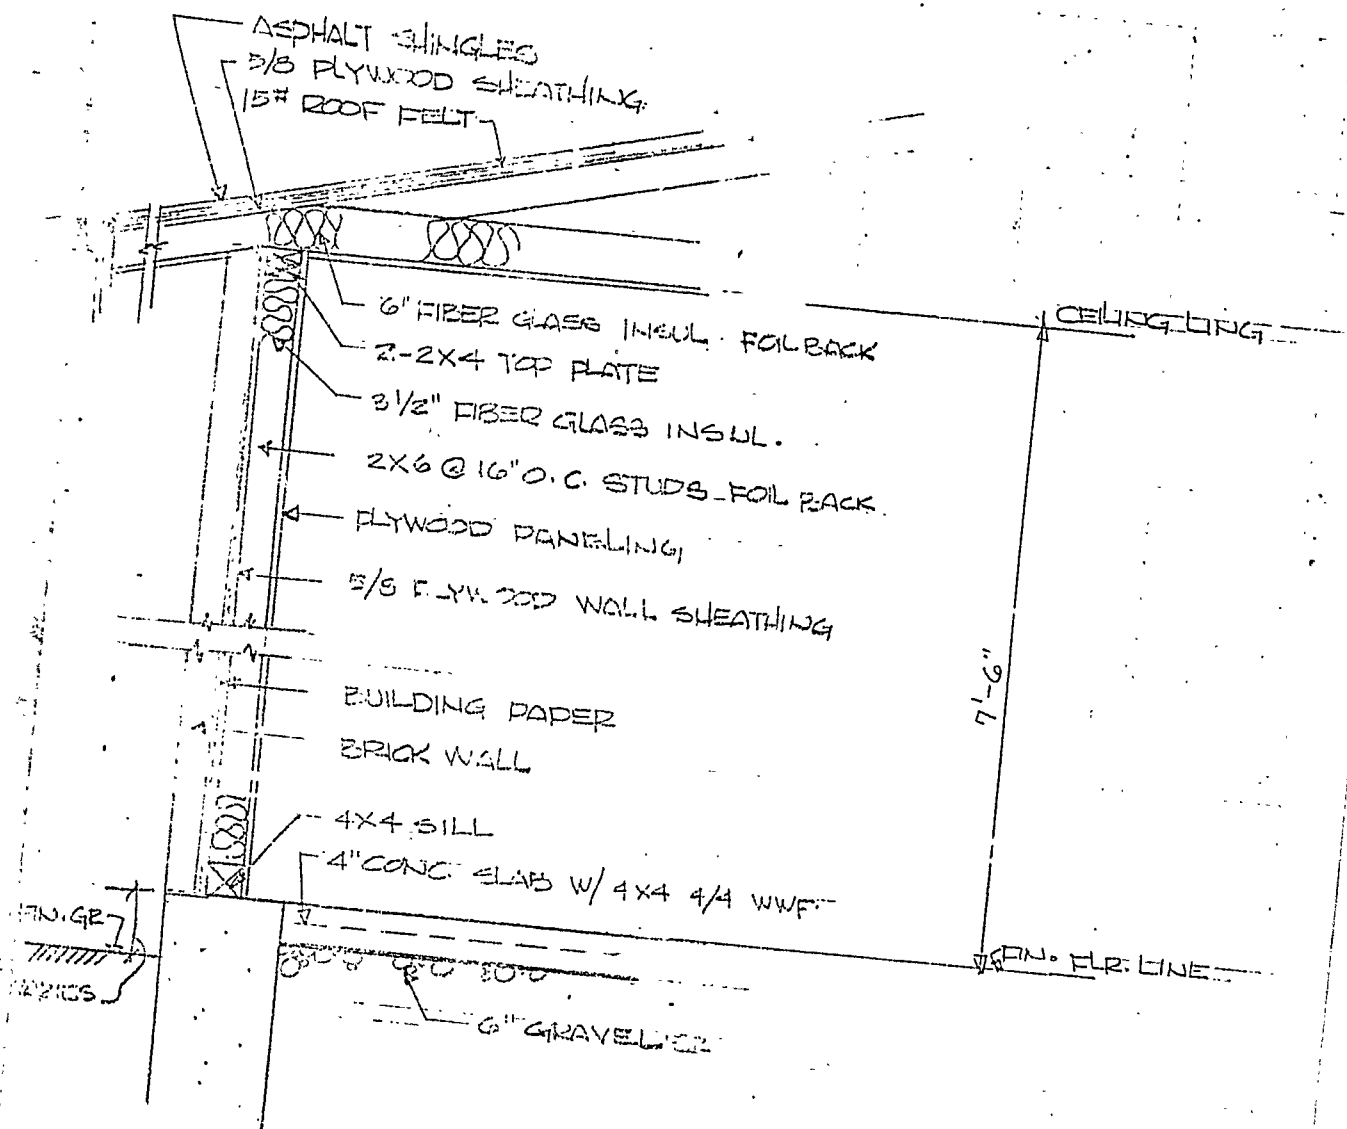 ASPHALT SHINGLES
5/8 PLYWOOD SHEATHING
15# ROOF FELT
6" FIBER GLASS INSUL. FOIL BACK
2-2X4 TOP PLATE
3 1/2" FIBER GLASS INSUL.
2X6 @ 16" O.C. STUDS_FOIL BACK
PLYWOOD PANELING
5/8 PLYWOOD WALL SHEATHING
BUILDING PAPER
BRICK WALL
4X4 SILL
4" CONC SLAB W/ 4X4 4/4 WWF
6" GRAVEL
FIN. GR
CEILING LINE
7'-6"
FIN. FLR. LINE